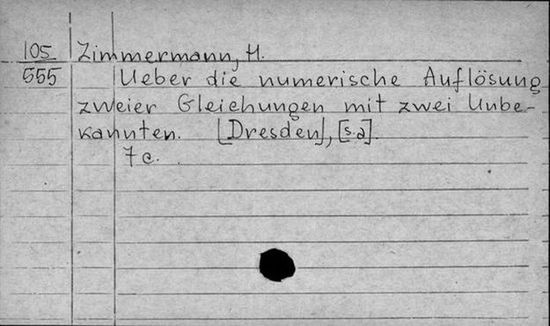 105 Zimmermann, H.
555 Ueber die numerische Auflösung
zweier Gleichungen mit zwei Unbe-
kannten. [Dresden], [s.a].
7 c.